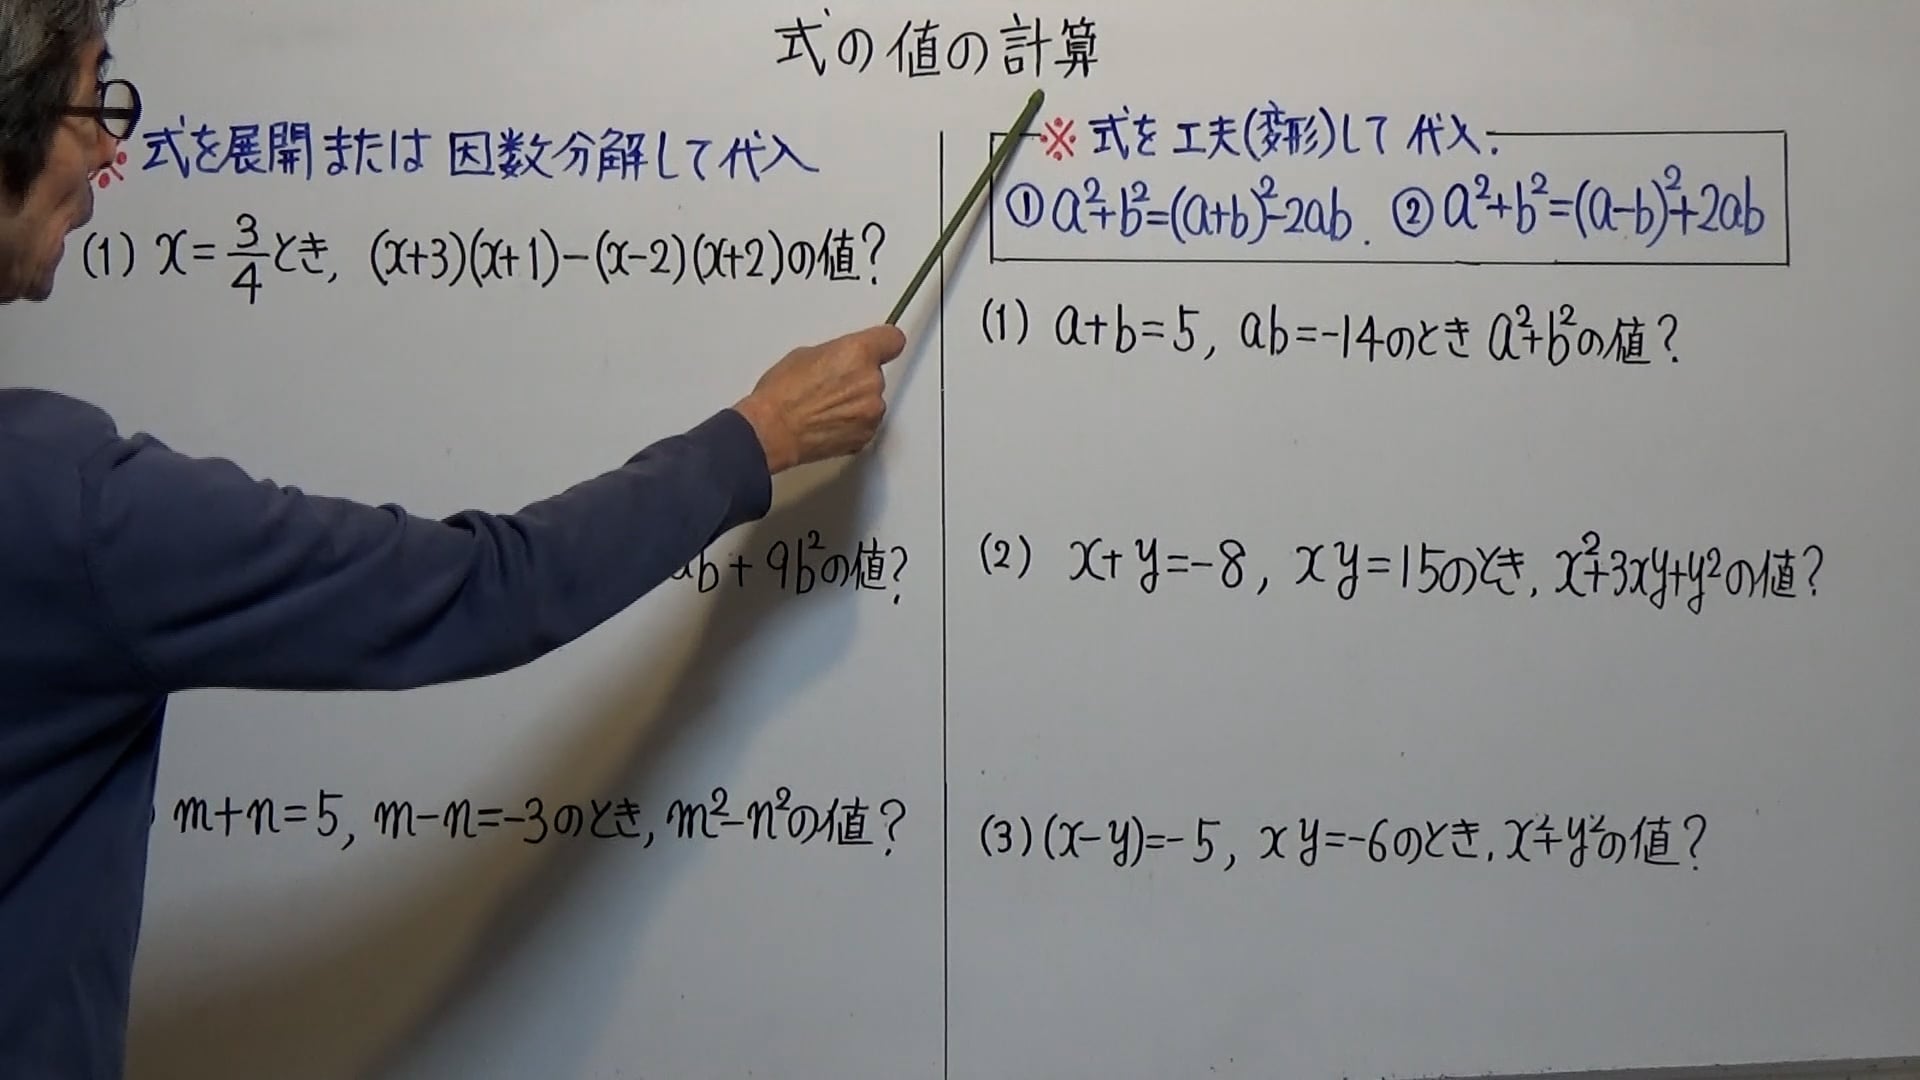 式の値の計算
※ 式を展開または因数分解して代入
(1) x=3/4とき, (x+3)(x+1)-(x-2)(x+2)の値?
b+9b²の値?
m+n=5, m-n=-3のとき, m²-n²の値?
※ 式を工夫(変形)して代入.
① a²+b²=(a+b)²-2ab. ② a²+b²=(a-b)²+2ab
(1) a+b=5, ab=-14のとき a²+b²の値?
(2) x+y=-8, xy=15のとき, x²+3xy+y²の値?
(3) (x-y)=-5, xy=-6のとき, x²+y²の値?